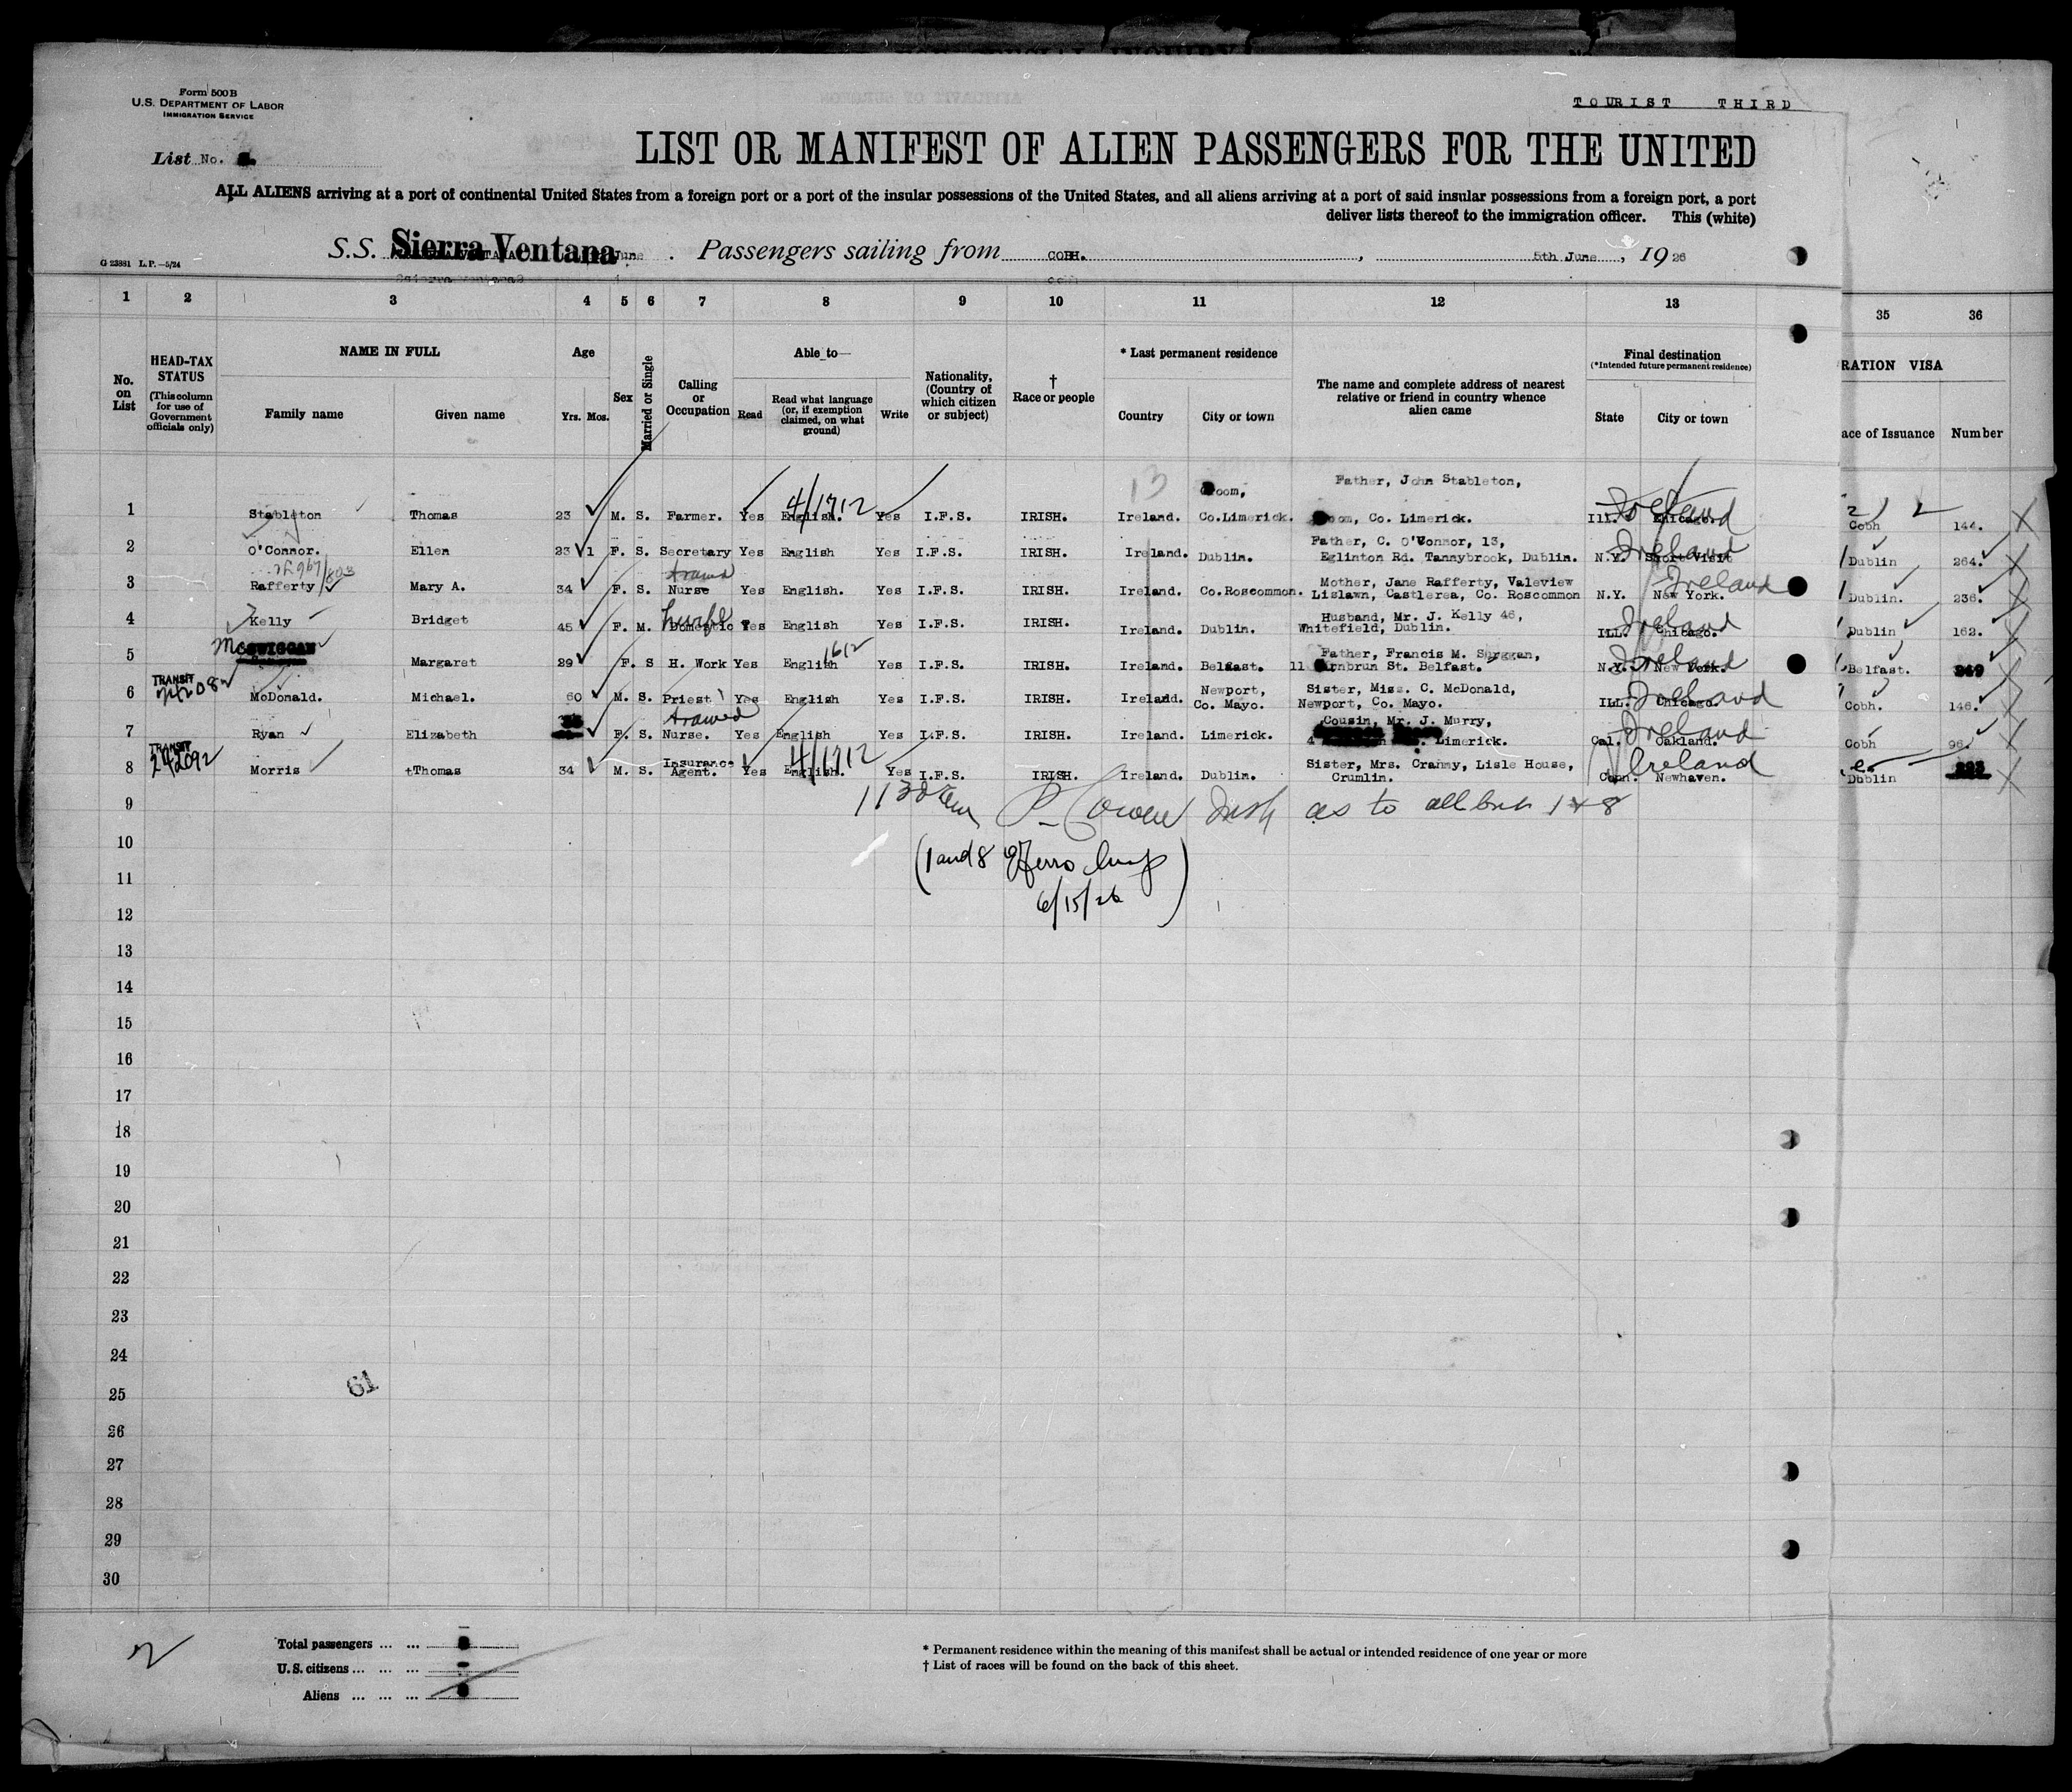 Form 500 B
U.S. DEPARTMENT OF LABOR
IMMIGRATION SERVICE
TOURIST THIRD
List No.
LIST OR MANIFEST OF ALIEN PASSENGERS FOR THE UNITED
ALL ALIENS arriving at a port of continental United States from a foreign port or a port of the insular possessions of the United States, and all aliens arriving at a port of said insular possessions from a foreign port, a port
deliver lists thereof to the immigration officer. This (white)
S.S. Sierra Ventana June . Passengers sailing from COBH. , 5th June , 19 26
G 23881 L.P.—5/24
1 2 3 4 5 6 7 8 9 10 11 12 13 35 36
No. on List
HEAD-TAX STATUS (This column for use of Government officials only)
NAME IN FULL
Family name Given name
Age
Yrs. Mos.
Sex
Married or Single
Calling or Occupation
Able to—
Read Read what language (or, if exemption claimed, on what ground) Write
Nationality, (Country of which citizen or subject)
† Race or people
* Last permanent residence
Country City or town
The name and complete address of nearest relative or friend in country whence alien came
Final destination
(*Intended future permanent residence)
State City or town
RATION VISA
ace of Issuance Number
13 Father, John Stableton,
1 Stableton Thomas 23 M. S. Farmer. Yes English. 4/1712 Yes I.F.S. IRISH. Ireland. Co.Limerick. Co. Limerick. Ill. Chicago. Ireland Cobh 144.
Father, C. O'Connor, 13,
2 O'Connor. Ellen 23 1 F. S. Secretary Yes English Yes I.F.S. IRISH. Ireland. Dublin. Eglinton Rd. Tannybrook, Dublin. N.Y. Short Visit Ireland Dublin 264.
Mother, Jane Rafferty, Valeview
3 Rafferty Mary A. 34 F. S. Nurse Yes English. Yes I.F.S. IRISH. Ireland. Co.Roscommon. Lislawn, Castlerea, Co. Roscommon N.Y. New York. Ireland Dublin. 236.
Husband, Mr. J. Kelly 46,
4 Kelly Bridget 45 F. M. Domestic Yes English Yes I.F.S. IRISH. Ireland. Dublin. Whitefield, Dublin. ILL. Chicago. Ireland Dublin 162.
Father, Francis M.
5 McSWIGGAN Margaret 29 F. S H. Work Yes English 1612 Yes I.F.S. IRISH. Ireland. Belfast. 11 St. Belfast. N.Y. New York. Ireland Belfast.
TRANSIT Newport, Sister, Miss. C. McDonald,
6 McDonald. Michael. 60 M. S. Priest Yes English Yes I.F.S. IRISH. Ireland. Co. Mayo. Newport, Co. Mayo. ILL. Chicago. Ireland Cobh. 146.
Cousin, Mr. J. Murry,
7 Ryan Elizabeth F. S. Nurse. Yes English Yes I.F.S. IRISH. Ireland. Limerick. 4 Limerick. Cal. Oakland. Ireland Cobh 96.
TRANSIT 242092 Insurance Sister, Mrs. Cranny, Lisle House,
8 Morris †Thomas 34 M. S. Agent. Yes English. 4/1712 Yes I.F.S. IRISH. Ireland. Dublin. Crumlin. Conn. Newhaven. Ireland Dublin
9 as to all but 1 & 8
10 (1 and 8
11 6/15/26 )
12
13
14
15
16
17
18
19
20
21
22
23
24
25 61
26
27
28
29
30
2
Total passengers ... ...
U.S. citizens ... ... ...
Aliens ... ... ...
* Permanent residence within the meaning of this manifest shall be actual or intended residence of one year or more
† List of races will be found on the back of this sheet.